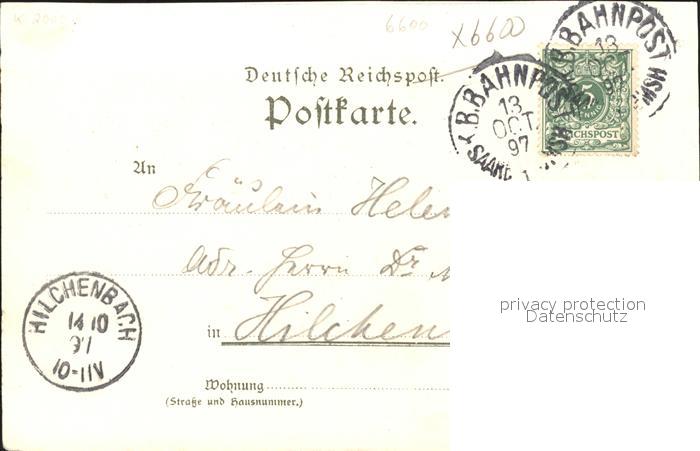 6600
X6600
Deutsche Reichspost.
Postkarte.
K.B.BAHNPOST
13
OCT.
97
SAARB
5
REICHSPOST
An
Fräulein Hele
Adr. Herrn Dr
in Hilchen
HILCHENBACH
14 10
97
10-11V
Wohnung
(Straße und Hausnummer.)
privacy protection
Datenschutz